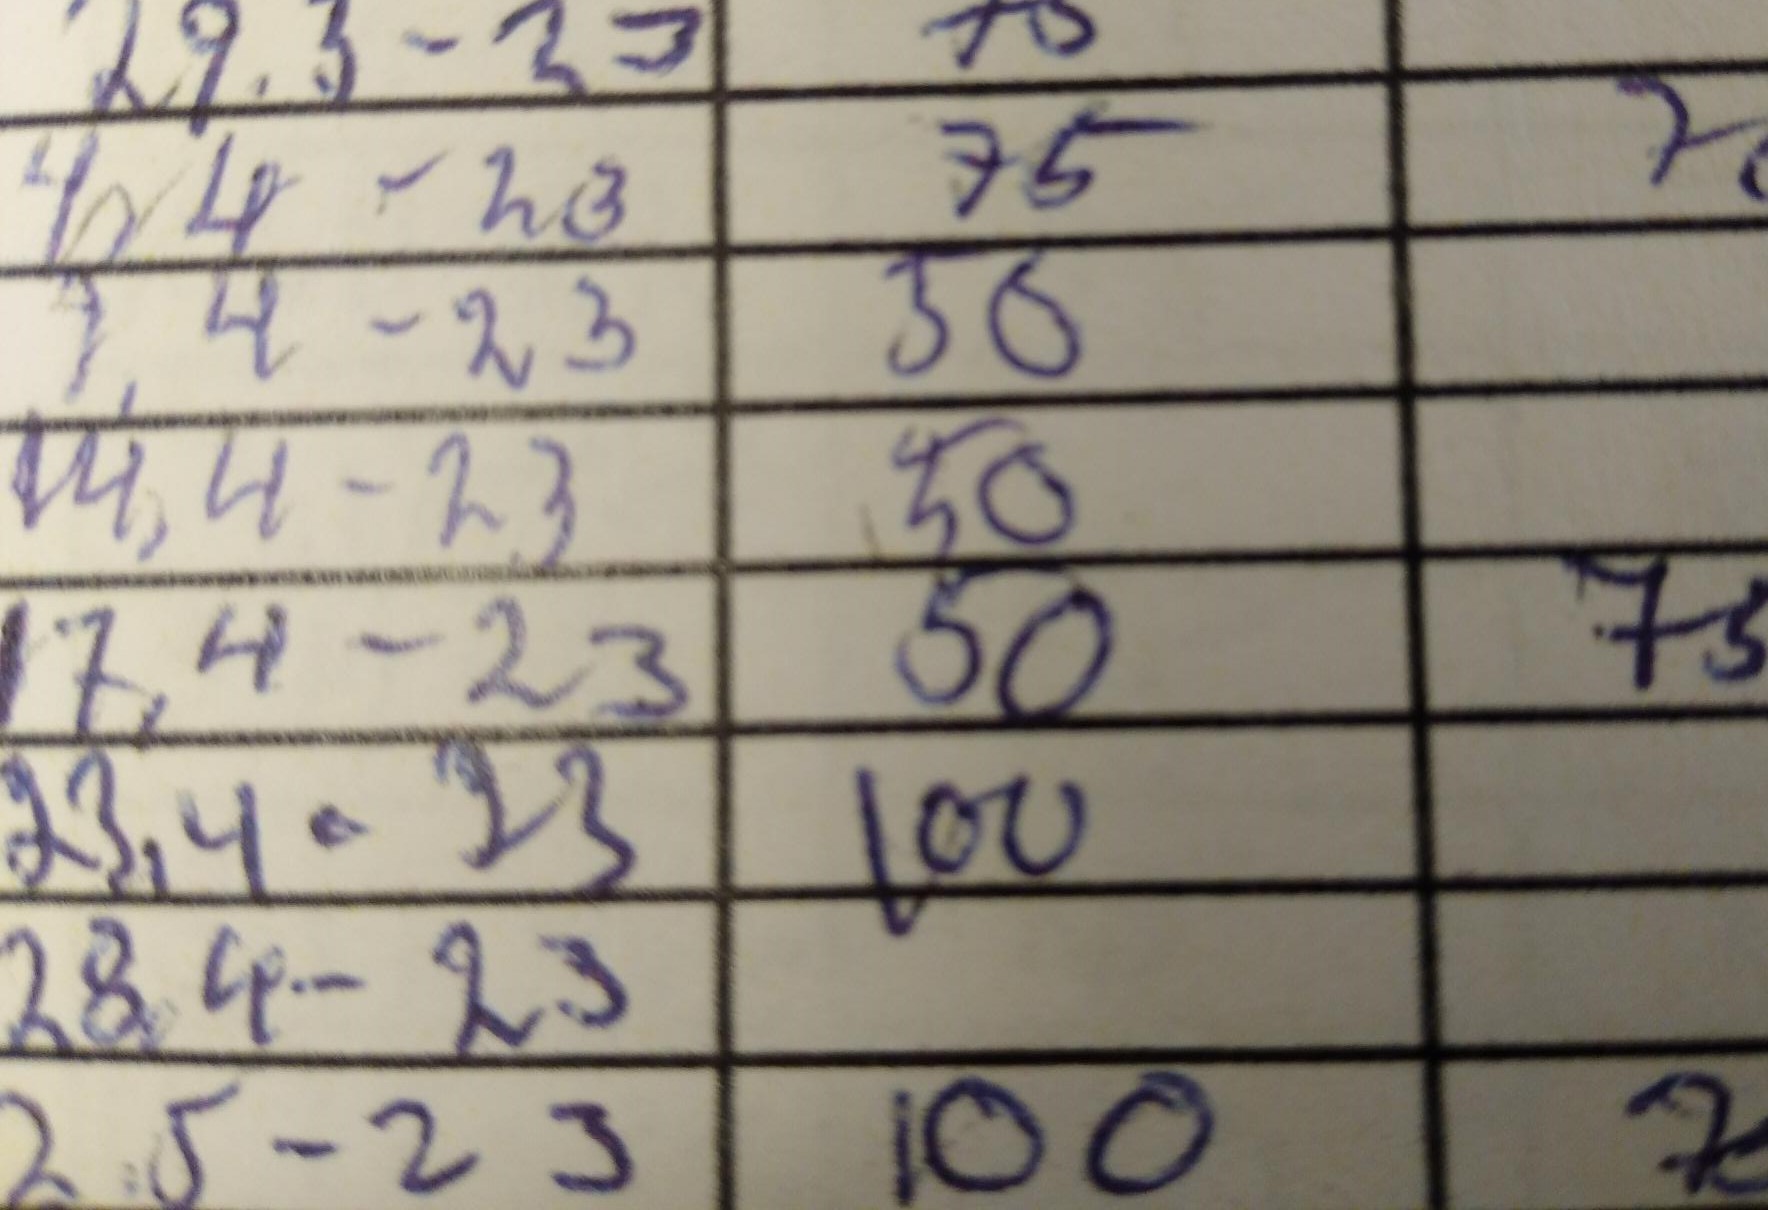 29.3-23 75
4,4-23 75
7,4-23 50
14,4-23 50
17,4-23 50 75
23,4-23 100
28.4-23
2.5-23 100